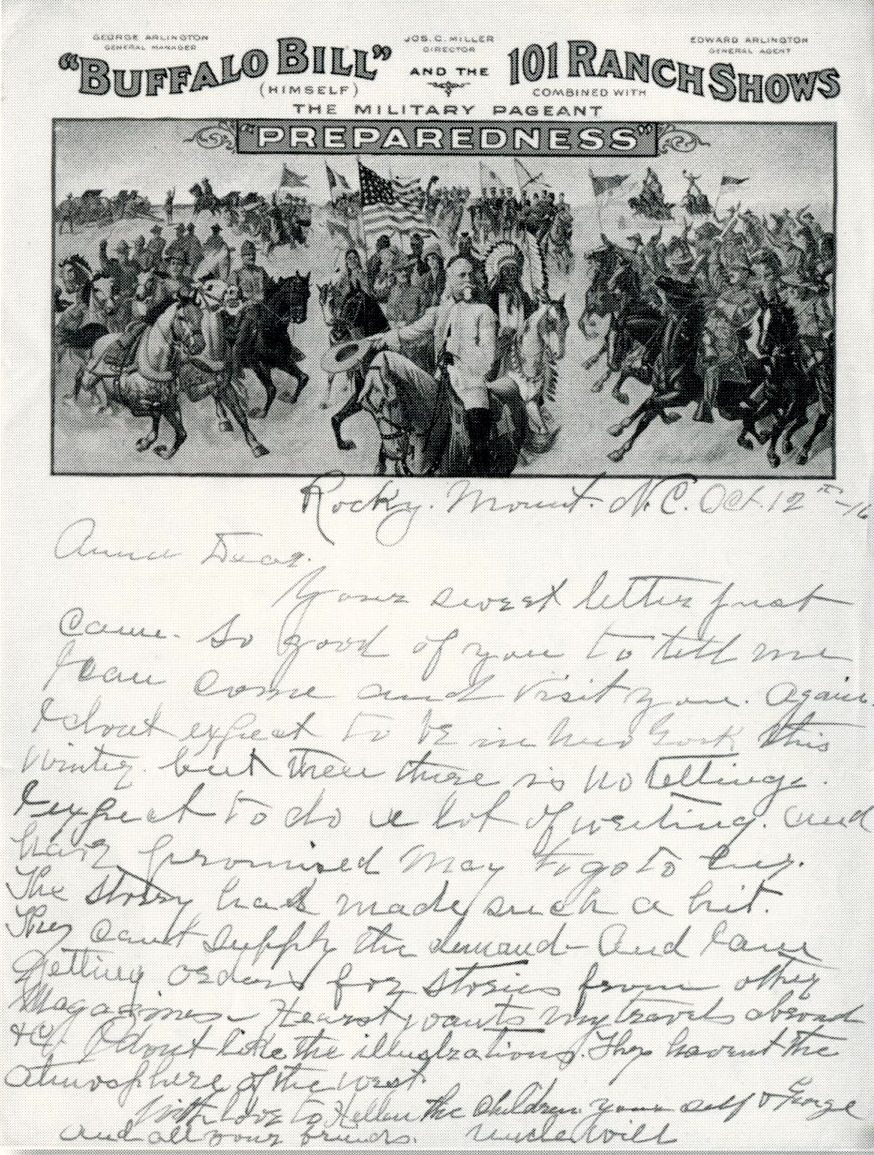 GEORGE ARLINGTON
GENERAL MANAGER
JOS. C. MILLER
DIRECTOR
EDWARD ARLINGTON
GENERAL AGENT
"BUFFALO BILL"
(HIMSELF)
AND THE
101 RANCH SHOWS
COMBINED WITH
THE MILITARY PAGEANT
"PREPAREDNESS"
Rocky. Mount. N.C. Oct. 12th-16
Anna Dear.
Your sweet letter just
came. So good of you to tell me
I can come and visit you. again.
I dont expect to be in New York this
winter. but then there is no telling.
I expect to do a lot of writing. and
have promised May to go to
The story has made such a hit.
They cant supply the demand- And I am
getting orders for stories from other
Magazines- Hearst wants my travels abroad
I dont like the illustrations. They havent the
atmosphere of the west.
With love to Hellen the children your self & George
and all your friends. Uncle Will